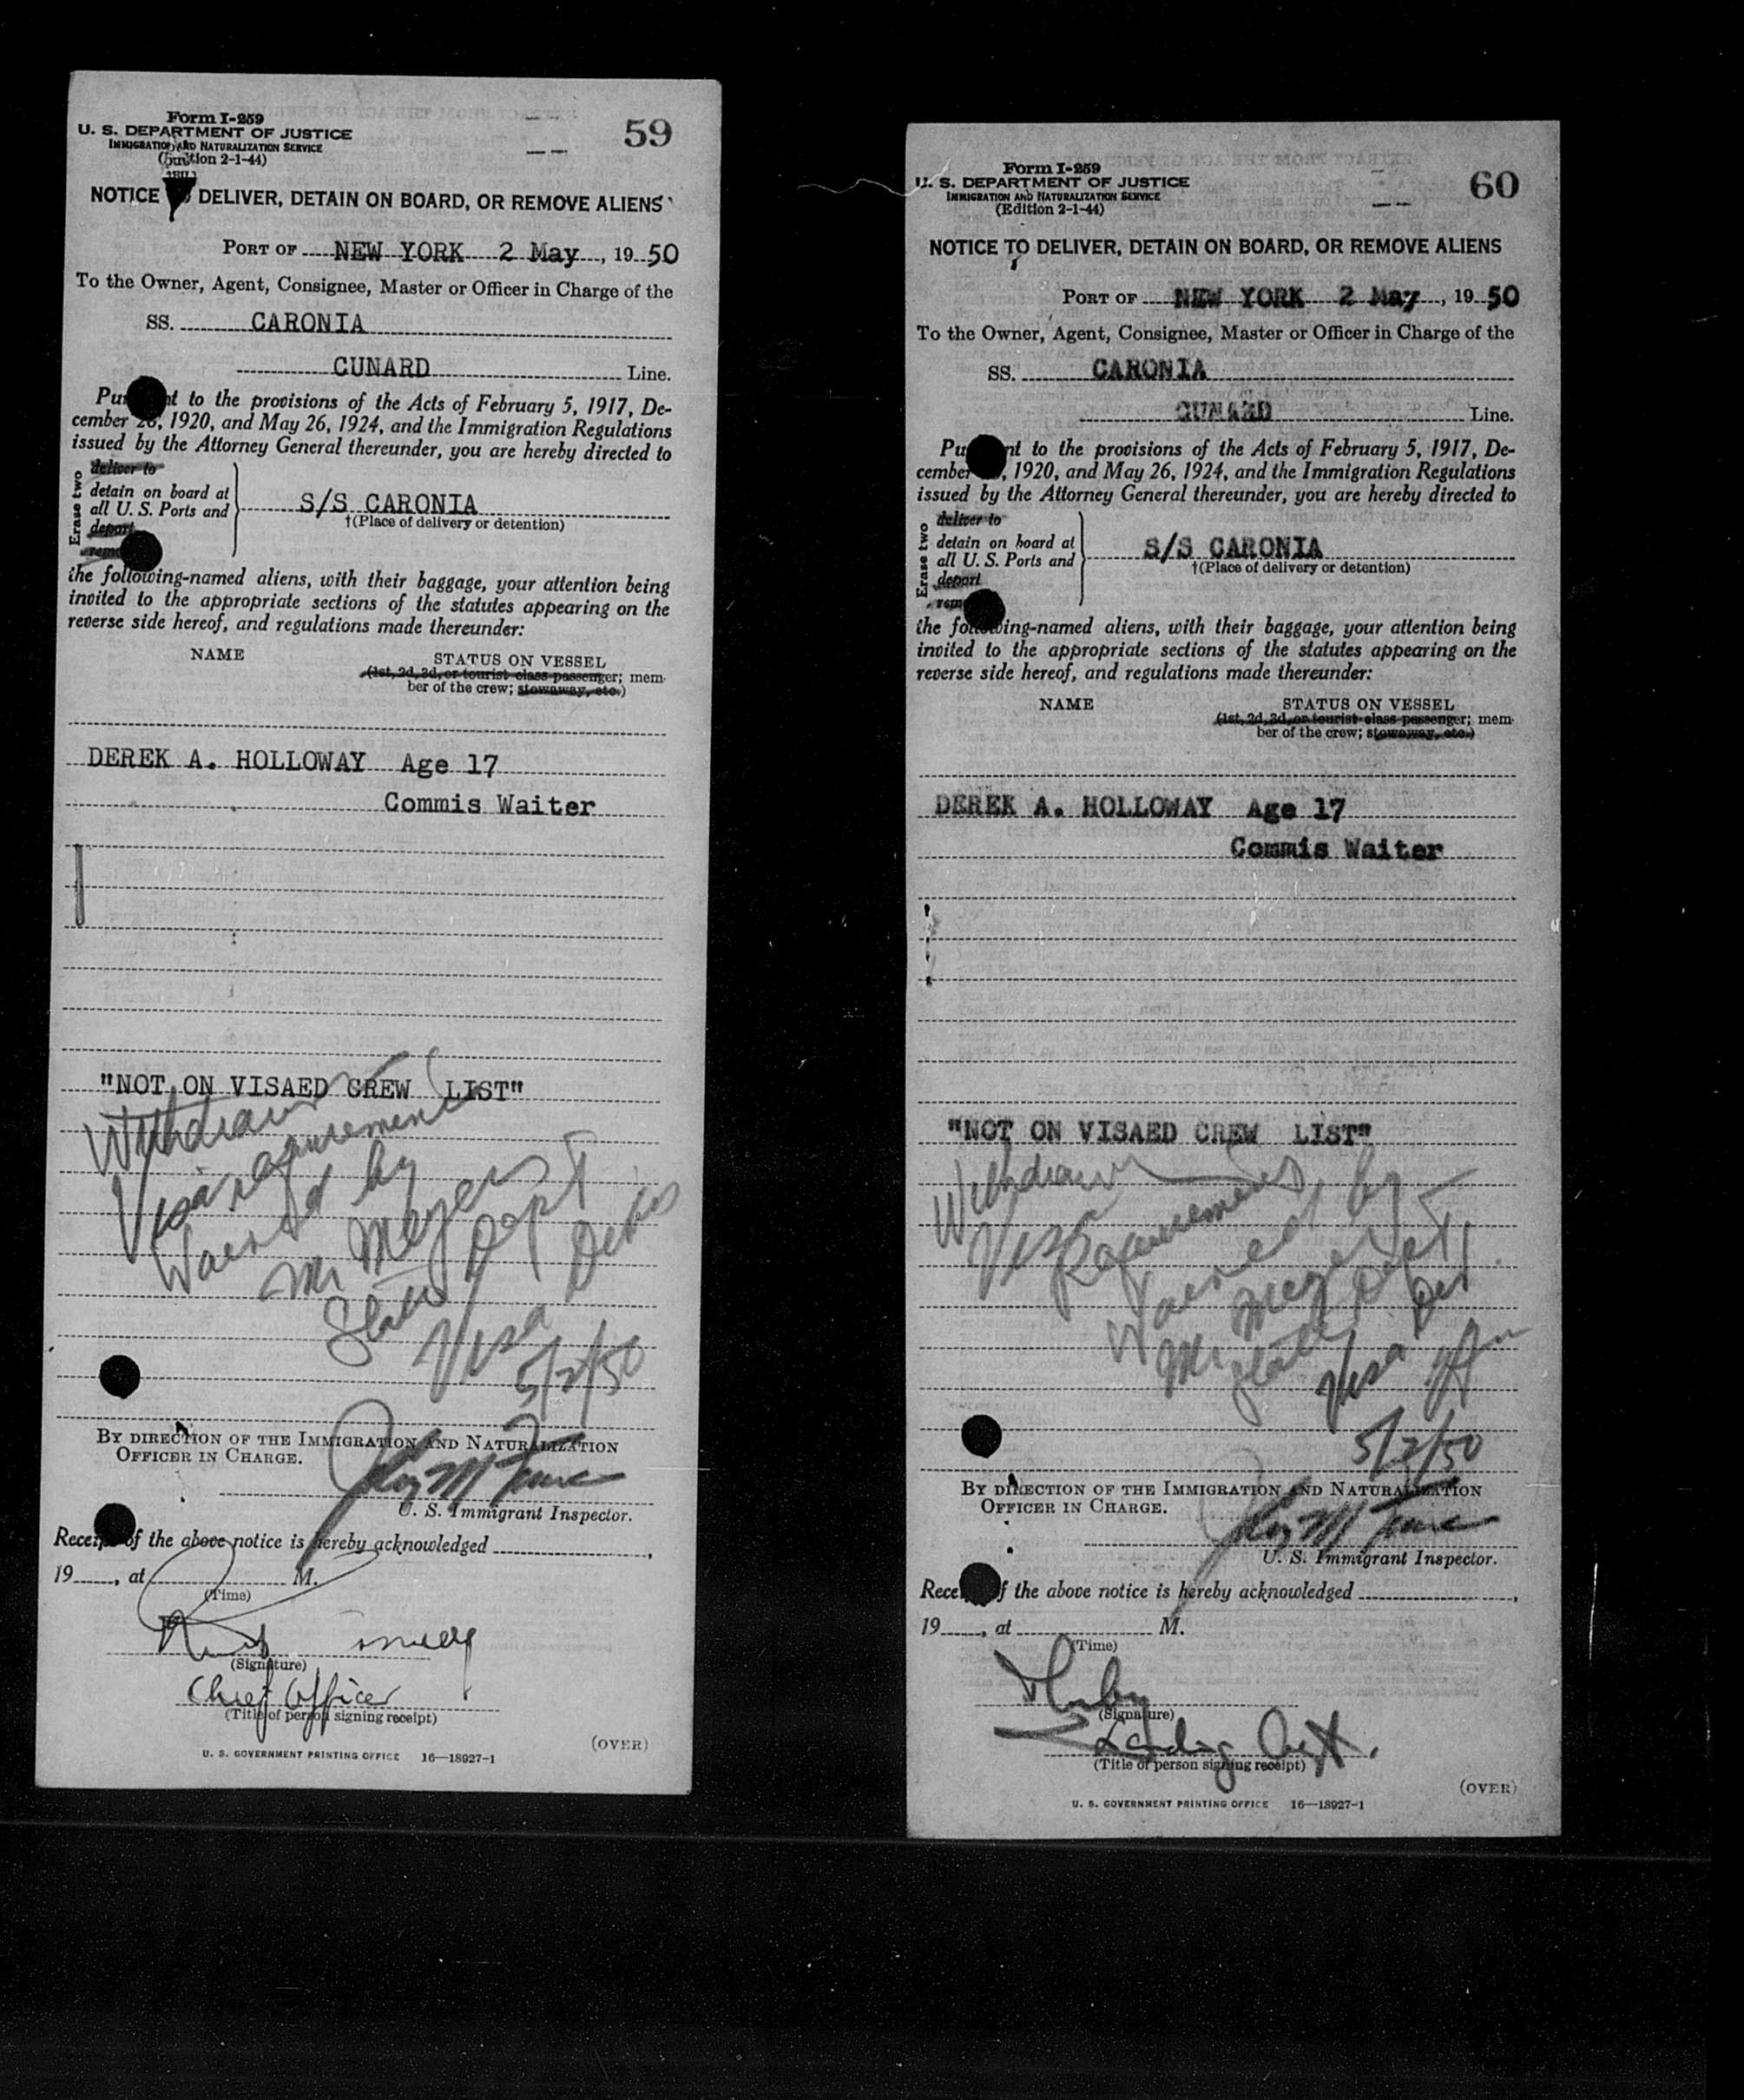 Form I-259
U. S. DEPARTMENT OF JUSTICE
IMMIGRATION AND NATURALIZATION SERVICE
(Edition 2-1-44)
59
NOTICE DELIVER, DETAIN ON BOARD, OR REMOVE ALIENS
PORT OF NEW YORK 2 May, 1950
To the Owner, Agent, Consignee, Master or Officer in Charge of the
SS. CARONIA
CUNARD Line.
to the provisions of the Acts of February 5, 1917, De-
cember 26, 1920, and May 26, 1924, and the Immigration Regulations
issued by the Attorney General thereunder, you are hereby directed to
Erase two
deliver to
detain on board at
all U. S. Ports and
deport
S/S CARONIA
†(Place of delivery or detention)
the following-named aliens, with their baggage, your attention being
invited to the appropriate sections of the statutes appearing on the
reverse side hereof, and regulations made thereunder:
NAME STATUS ON VESSEL
(1st, 2d, 3d, or tourist class passenger; mem-
ber of the crew; stowaway, etc.)
DEREK A. HOLLOWAY Age 17
Commis Waiter
"NOT ON VISAED CREW LIST"
Withdrawn
Visa requirements
Waived by
Mr Meyers
State Dept
Visa
5/2/50
BY DIRECTION OF THE IMMIGRATION AND NATURALIZATION
OFFICER IN CHARGE.
U. S. Immigrant Inspector.
Receipt of the above notice is hereby acknowledged ,
19 , at M.
(Time)
(Signature)
Chief Officer
(Title of person signing receipt)
(OVER)
U. S. GOVERNMENT PRINTING OFFICE 16—18927-1
Form I-259
U. S. DEPARTMENT OF JUSTICE
IMMIGRATION AND NATURALIZATION SERVICE
(Edition 2-1-44)
60
NOTICE TO DELIVER, DETAIN ON BOARD, OR REMOVE ALIENS
PORT OF NEW YORK 2 May, 1950
To the Owner, Agent, Consignee, Master or Officer in Charge of the
SS. CARONIA
CUNARD Line.
to the provisions of the Acts of February 5, 1917, De-
cember , 1920, and May 26, 1924, and the Immigration Regulations
issued by the Attorney General thereunder, you are hereby directed to
Erase two
deliver to
detain on board at
all U. S. Ports and
deport
S/S CARONIA
†(Place of delivery or detention)
the following-named aliens, with their baggage, your attention being
invited to the appropriate sections of the statutes appearing on the
reverse side hereof, and regulations made thereunder:
NAME STATUS ON VESSEL
(1st, 2d, 3d, or tourist class passenger; mem-
ber of the crew; stowaway, etc.)
DEREK A. HOLLOWAY Age 17
Commis Waiter
"NOT ON VISAED CREW LIST"
Withdrawn
Visa
Requirements
Waived by
Mr Meyer
State Dept.
Visa
5/2/50
BY DIRECTION OF THE IMMIGRATION AND NATURALIZATION
OFFICER IN CHARGE.
U. S. Immigrant Inspector.
Receipt of the above notice is hereby acknowledged ,
19 , at M.
(Time)
(Signature)
(Title of person signing receipt)
(OVER)
U. S. GOVERNMENT PRINTING OFFICE 16—18927-1